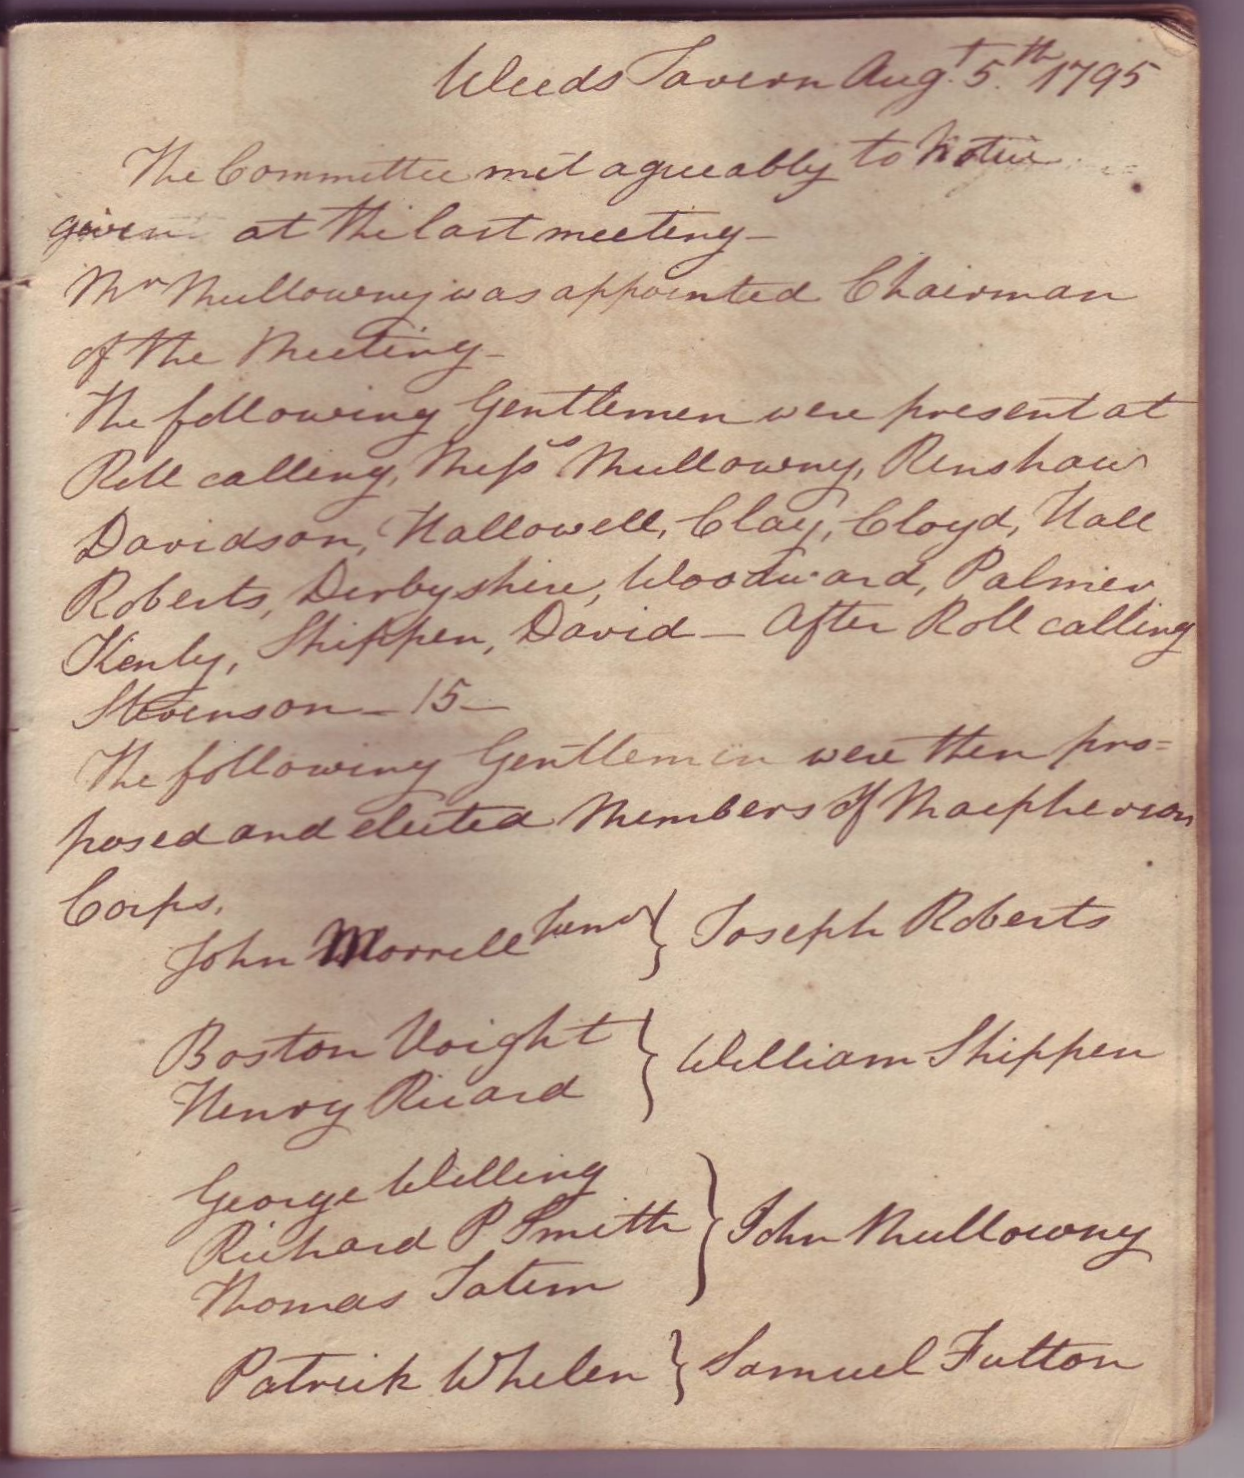 Weeds Tavern Augt. 5th. 1795
The Committee met agreeably to Notice
given at the last meeting—
Mr Mullowny was appointed Chairman
of the Meeting—
The following Gentlemen were present at
Roll calling, Messs Mullowny, Renshaw
Davidson, Hallowell, Clay, Cloyd, Hall
Roberts, Derbyshire, Woodward, Palmer,
Kenly, Shippen, David — After Roll calling
Stevenson — 15 —
The following Gentlemen were then pro=
posed and elected Members of Macpherson
Corps,
John Morrell Junr } Joseph Roberts
Boston Voight
Henry Ricard } William Shippen
George Willing
Richard P Smith } John Mullowny
Thomas Tatem
Patrick Whelen } Samuel Fulton